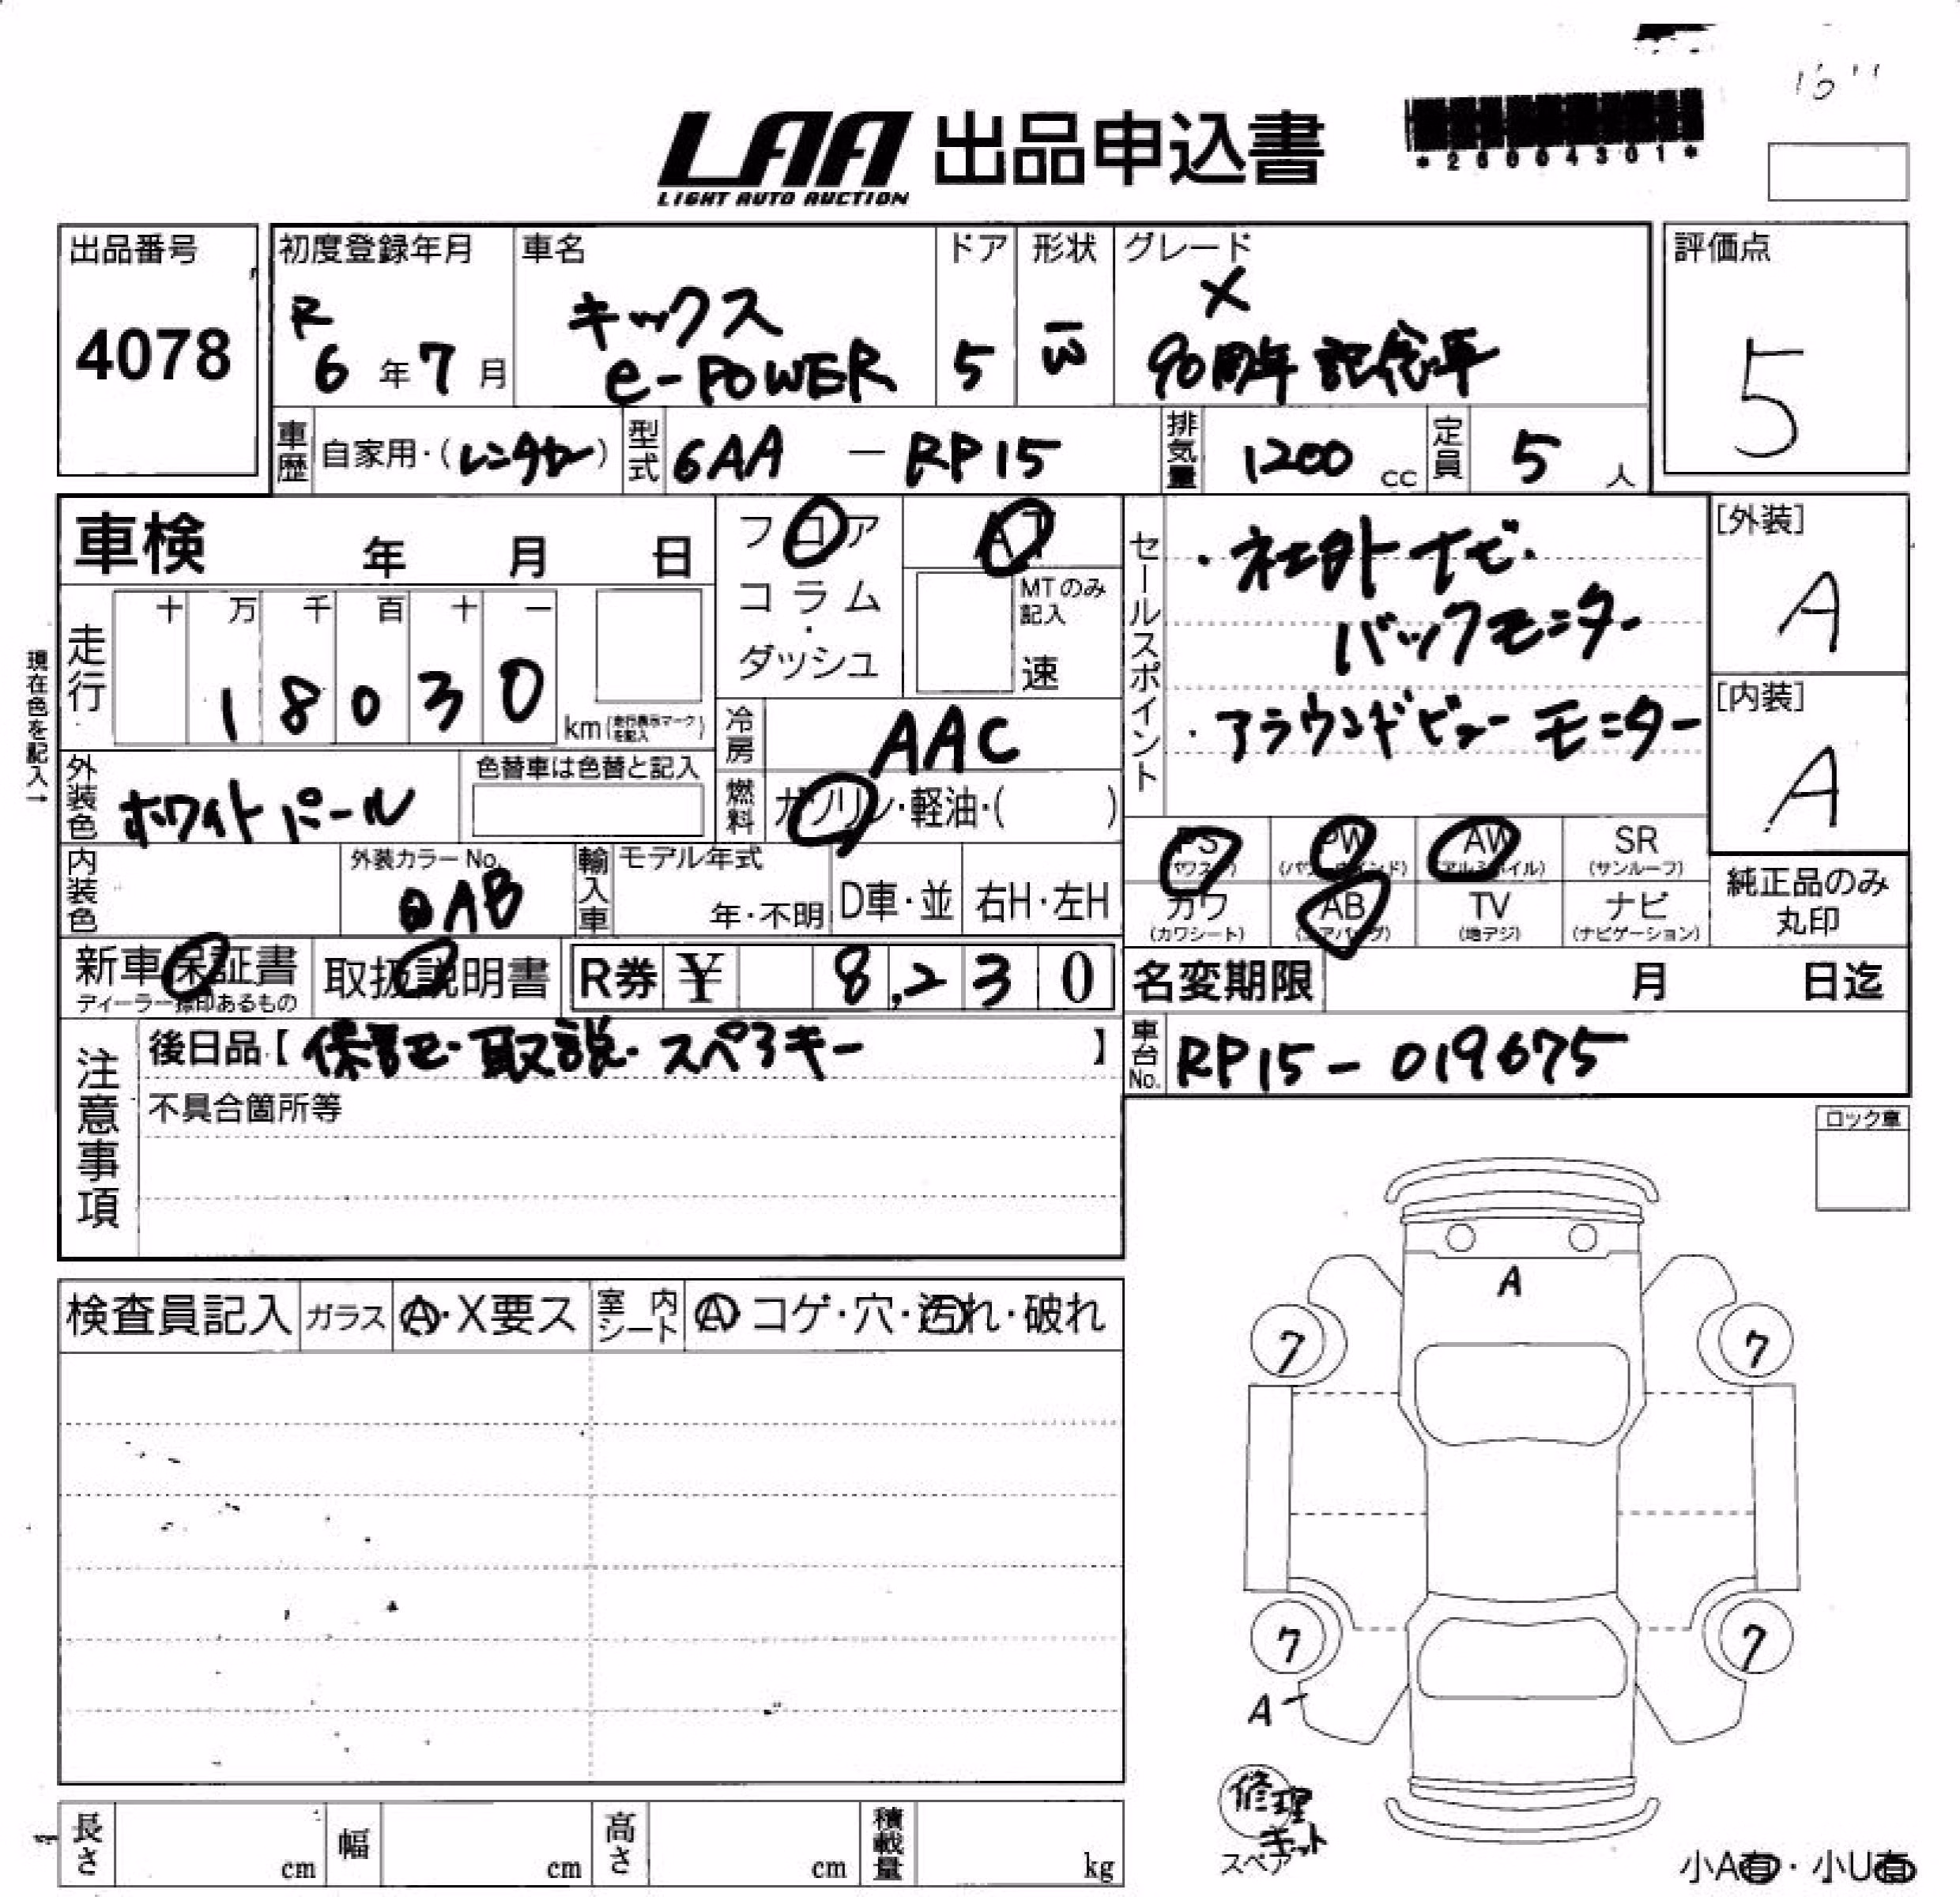 15"
LAA 出品申込書
LIGHT AUTO AUCTION
*26004301*
出品番号
4078
初度登録年月
R
6年7月
車名
キックス
e-POWER
ドア
5
形状
グレード
X
90周年記念車
評価点
5
車歴
自家用・(レンタカー)
型式
6AA - RP15
排気量
1200cc
定員
5人
車検 年 月 日
フロア
コラム
・
ダッシュ
AT
MTのみ
記入
速
セールスポイント
・社外ナビ・
バックモニター
・アラウンドビューモニター
[外装]
A
[内装]
A
現在色を記入→
走行
十 万 千 百 十 一
1 8 0 3 0
km(走行表示マークを記入)
冷房
AAC
外装色
ホワイトパール
色替車は色替と記入
燃料
ガソリン・軽油・( )
PS
(パワステ)
PW
(パワーウインド)
AW
(アルミホイル)
SR
(サンルーフ)
カワ
(カワシート)
AB
(エアバッグ)
TV
(地デジ)
ナビ
(ナビゲーション)
純正品のみ
丸印
内装色
外装カラーNo.
QAB
輸入車
モデル年式
年・不明
D車・並
右H・左H
新車保証書
ディーラー捺印あるもの
取扱説明書
R券 ¥ 8,230
名変期限 月 日迄
注意事項
後日品【保証・取説・スペアキー】
不具合箇所等
車台No.
RP15-019675
ロック車
検査員記入
ガラス
A・X要ス
室内シート
A コゲ・穴・汚れ・破れ
A
7
7
7
7
A
修理
キット
スペア
長さ cm
幅 cm
高さ cm
積載量 kg
小A有・小U有